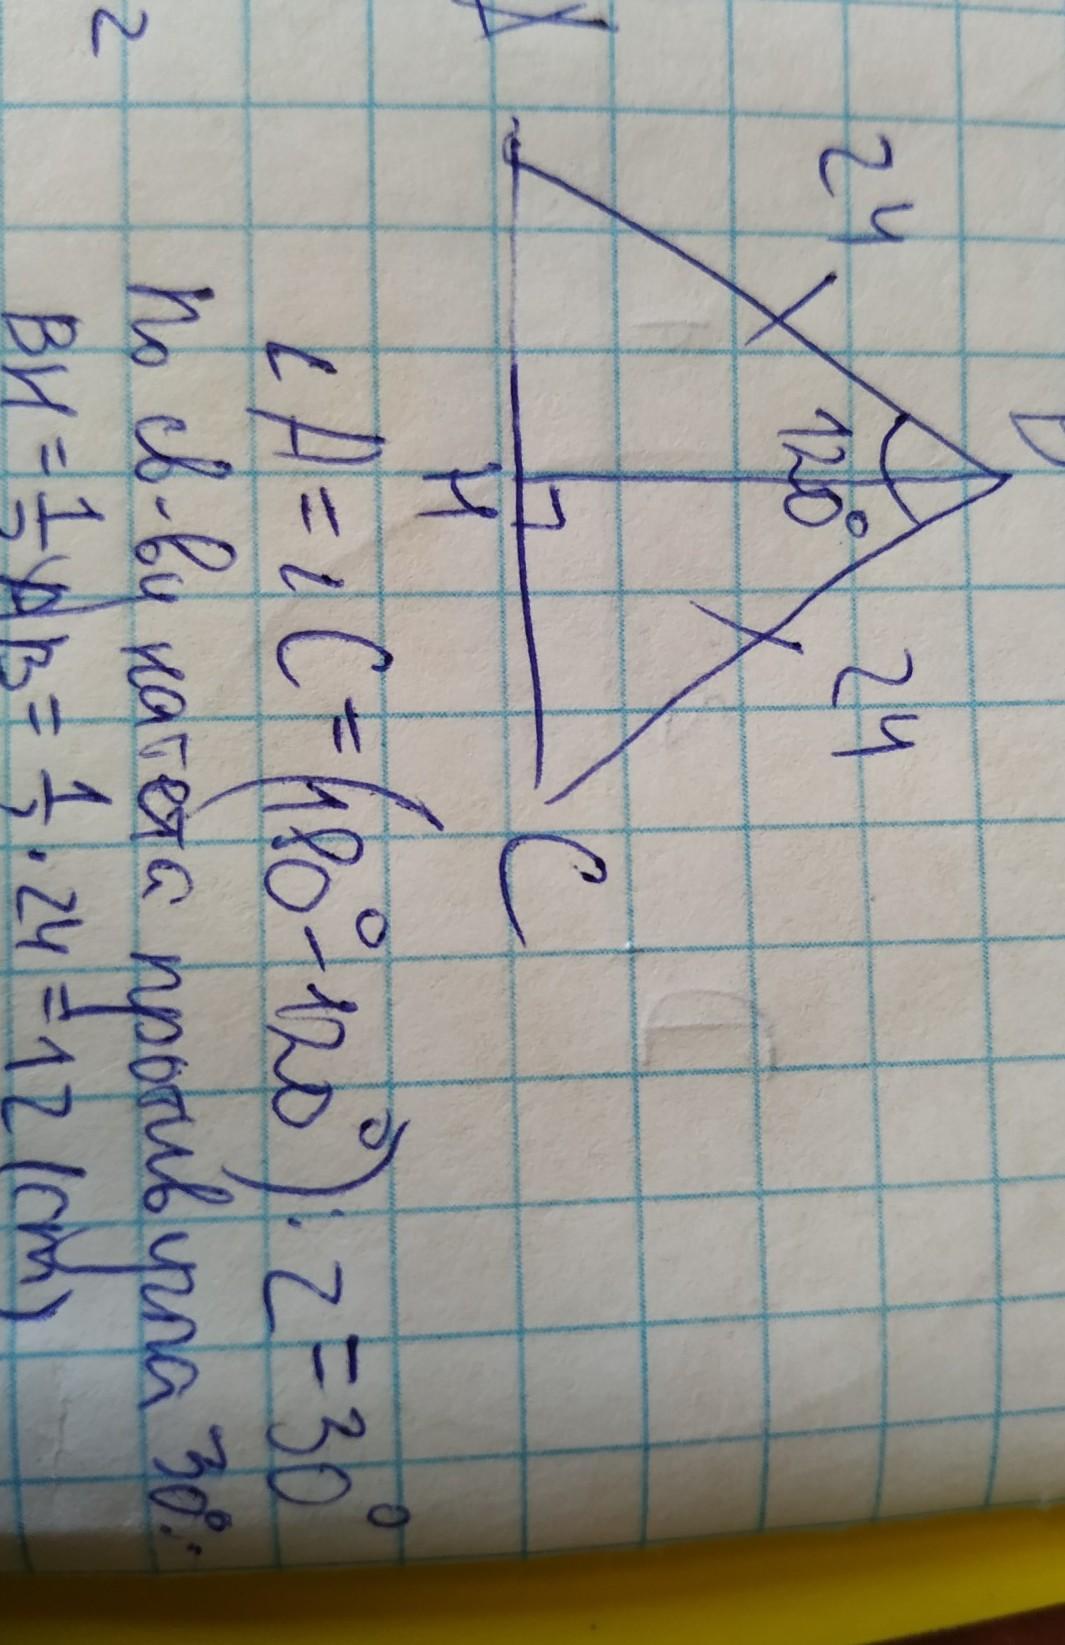 24
24
120°
H
C
∠A=∠C=(180°-120°):2=30°
По св-ву катета против угла 30°:
BH=1/2AB=1/2·24=12(см)